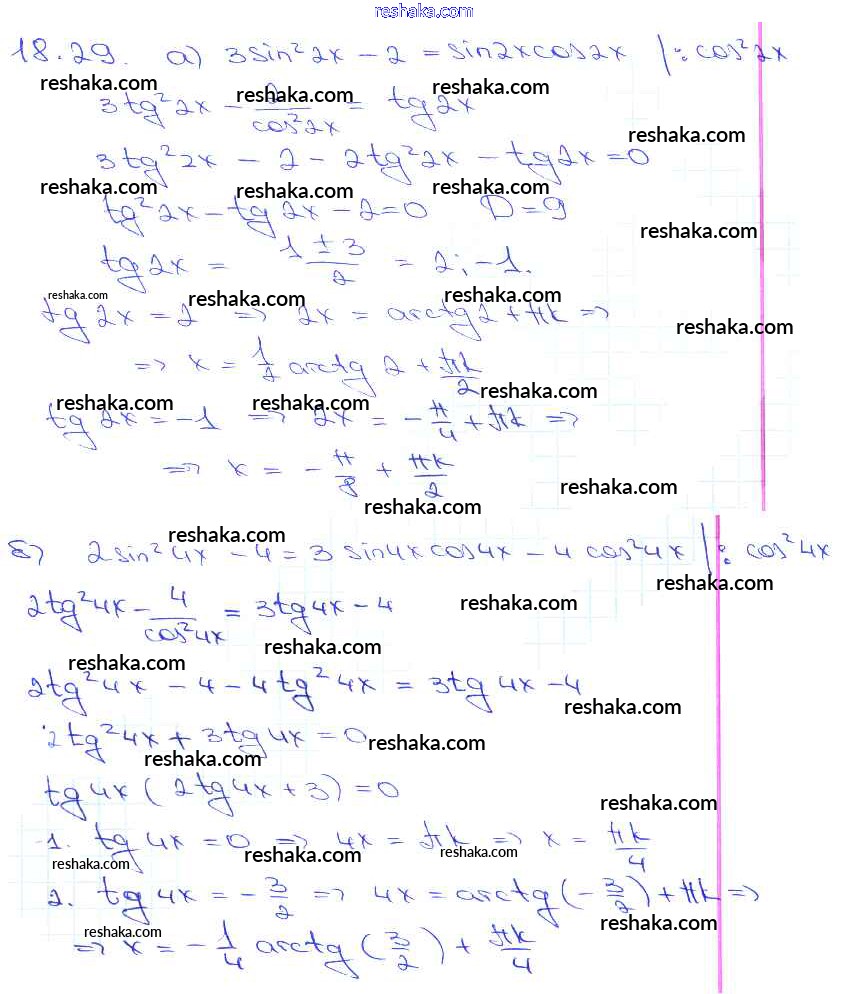 reshaka.com
18.29. а) 3sin²2x - 2 = sin2x cos2x |: cos²2x
reshaka.com reshaka.com reshaka.com
3tg²2x - 2/cos²2x = tg2x
reshaka.com
3tg²2x - 2 - 2tg²2x - tg2x = 0
reshaka.com reshaka.com reshaka.com
tg²2x - tg2x - 2 = 0 D = 9
reshaka.com
tg2x = (1 ± 3)/2 = 2; -1.
reshaka.com reshaka.com reshaka.com
tg2x = 2 => 2x = arctg2 + πk =>
reshaka.com
=> x = 1/2 arctg 2 + πk/2
reshaka.com reshaka.com reshaka.com
tg2x = -1 => 2x = -π/4 + πk =>
=> x = -π/8 + πk/2
reshaka.com
reshaka.com
reshaka.com
б) 2sin²4x - 4 = 3sin4x cos4x - 4cos²4x |: cos²4x
reshaka.com
2tg²4x - 4/cos²4x = 3tg4x - 4
reshaka.com
reshaka.com
reshaka.com
2tg²4x - 4 - 4tg²4x = 3tg4x - 4
reshaka.com
2tg²4x + 3tg4x = 0
reshaka.com
reshaka.com
tg4x (2tg4x + 3) = 0
reshaka.com
1. tg4x = 0 => 4x = πk => x = πk/4
reshaka.com reshaka.com reshaka.com
2. tg4x = -3/2 => 4x = arctg(-3/2) + πk =>
reshaka.com reshaka.com reshaka.com
=> x = -1/4 arctg(3/2) + πk/4